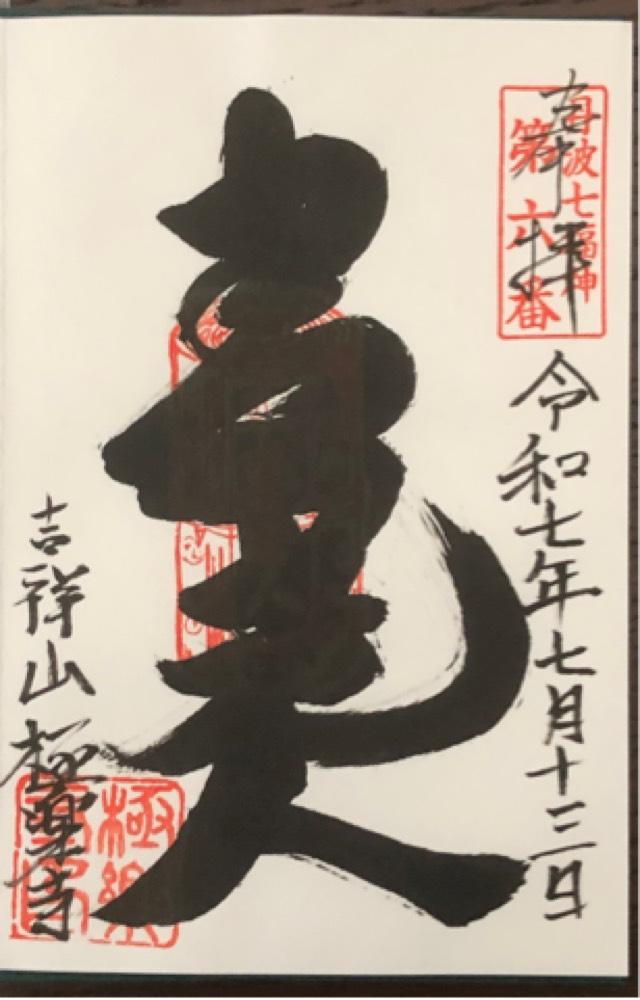 丹波七福神
第六番
奉拝
令和七年七月十三日
吉祥山 極楽寺